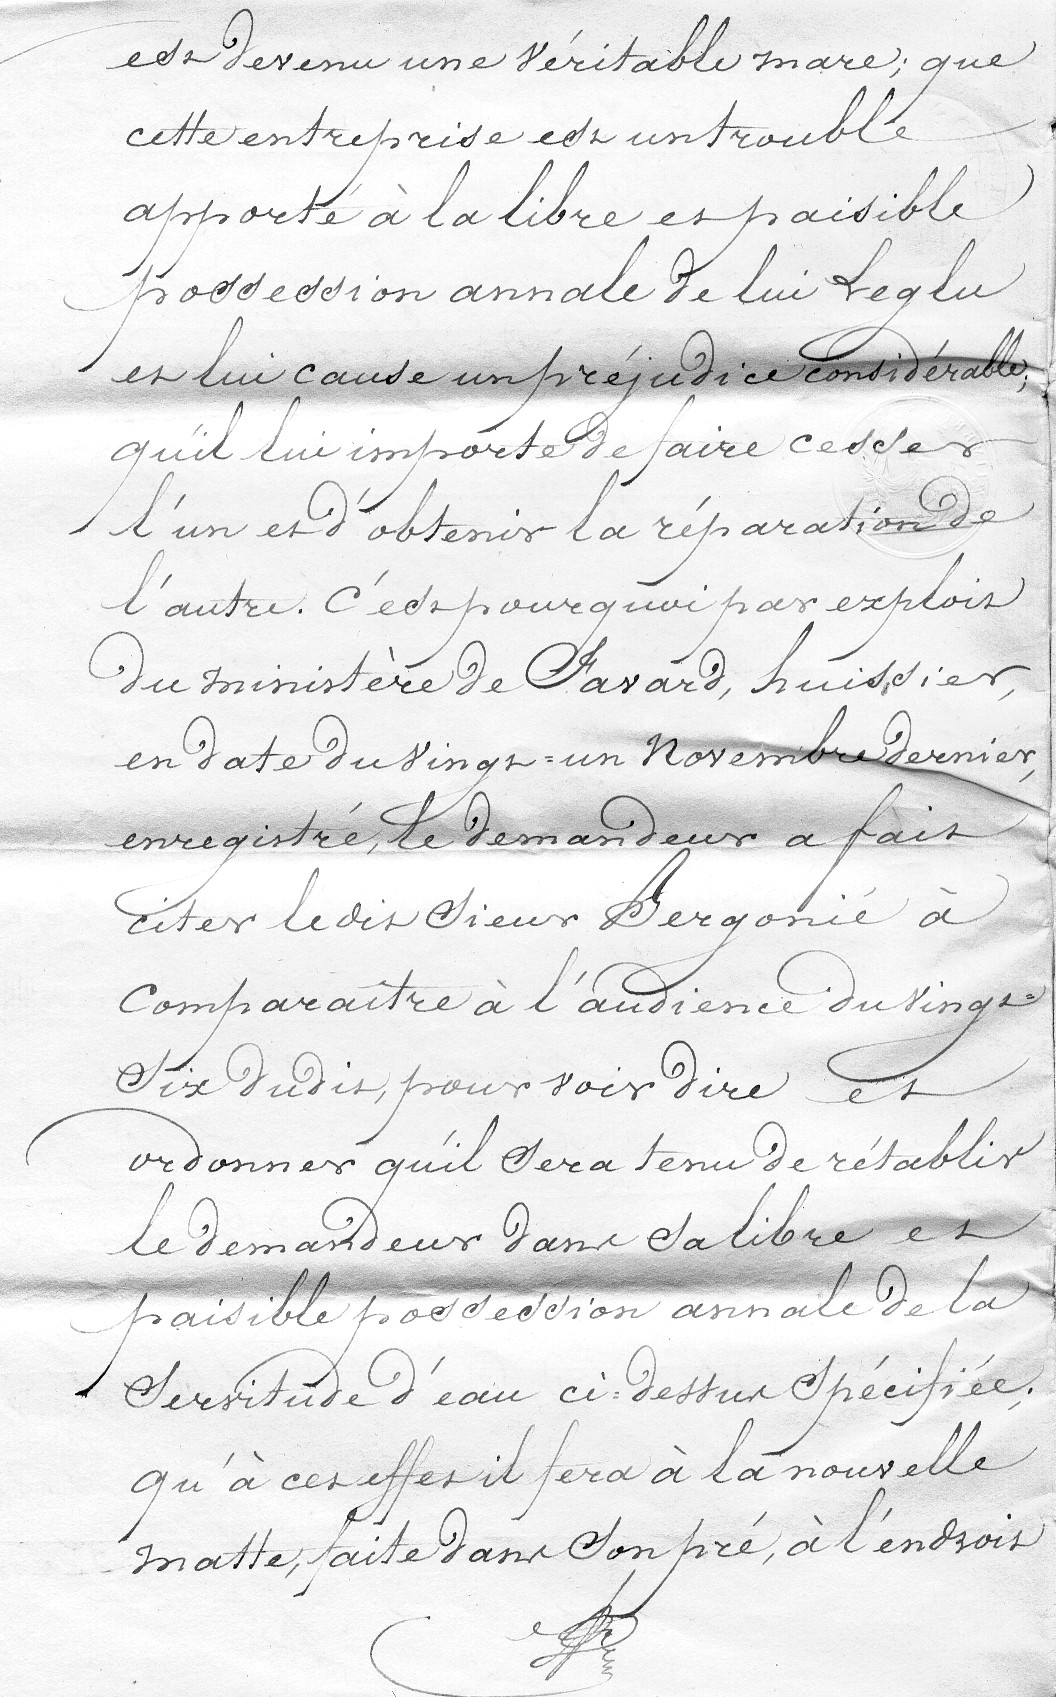 est devenu une véritable mare; que
cette entreprise est un trouble
apporté à la libre et paisible
possession annale de lui Leglu
et lui cause un préjudice considérable;
qu'il lui importe de faire cesser
l'un et d'obtenir la réparation de
l'autre. C'est pourquoi par exploit
du ministère de Favard, huissier,
en date du vingt=un Novembre dernier,
enregistré, le demandeur a fait
citer ledit Sieur Bergonié à
Comparaître à l'audience du vingt=
Six dudit, pour voir dire et
ordonner qu'il sera tenu de rétablir
le demandeur dans sa libre et
paisible possession annale de la
Servitude d'eau ci=dessus Spécifiée;
qu'à cet effet il fera à la nouvelle
matte, faite dans Son pré, à l'endroit